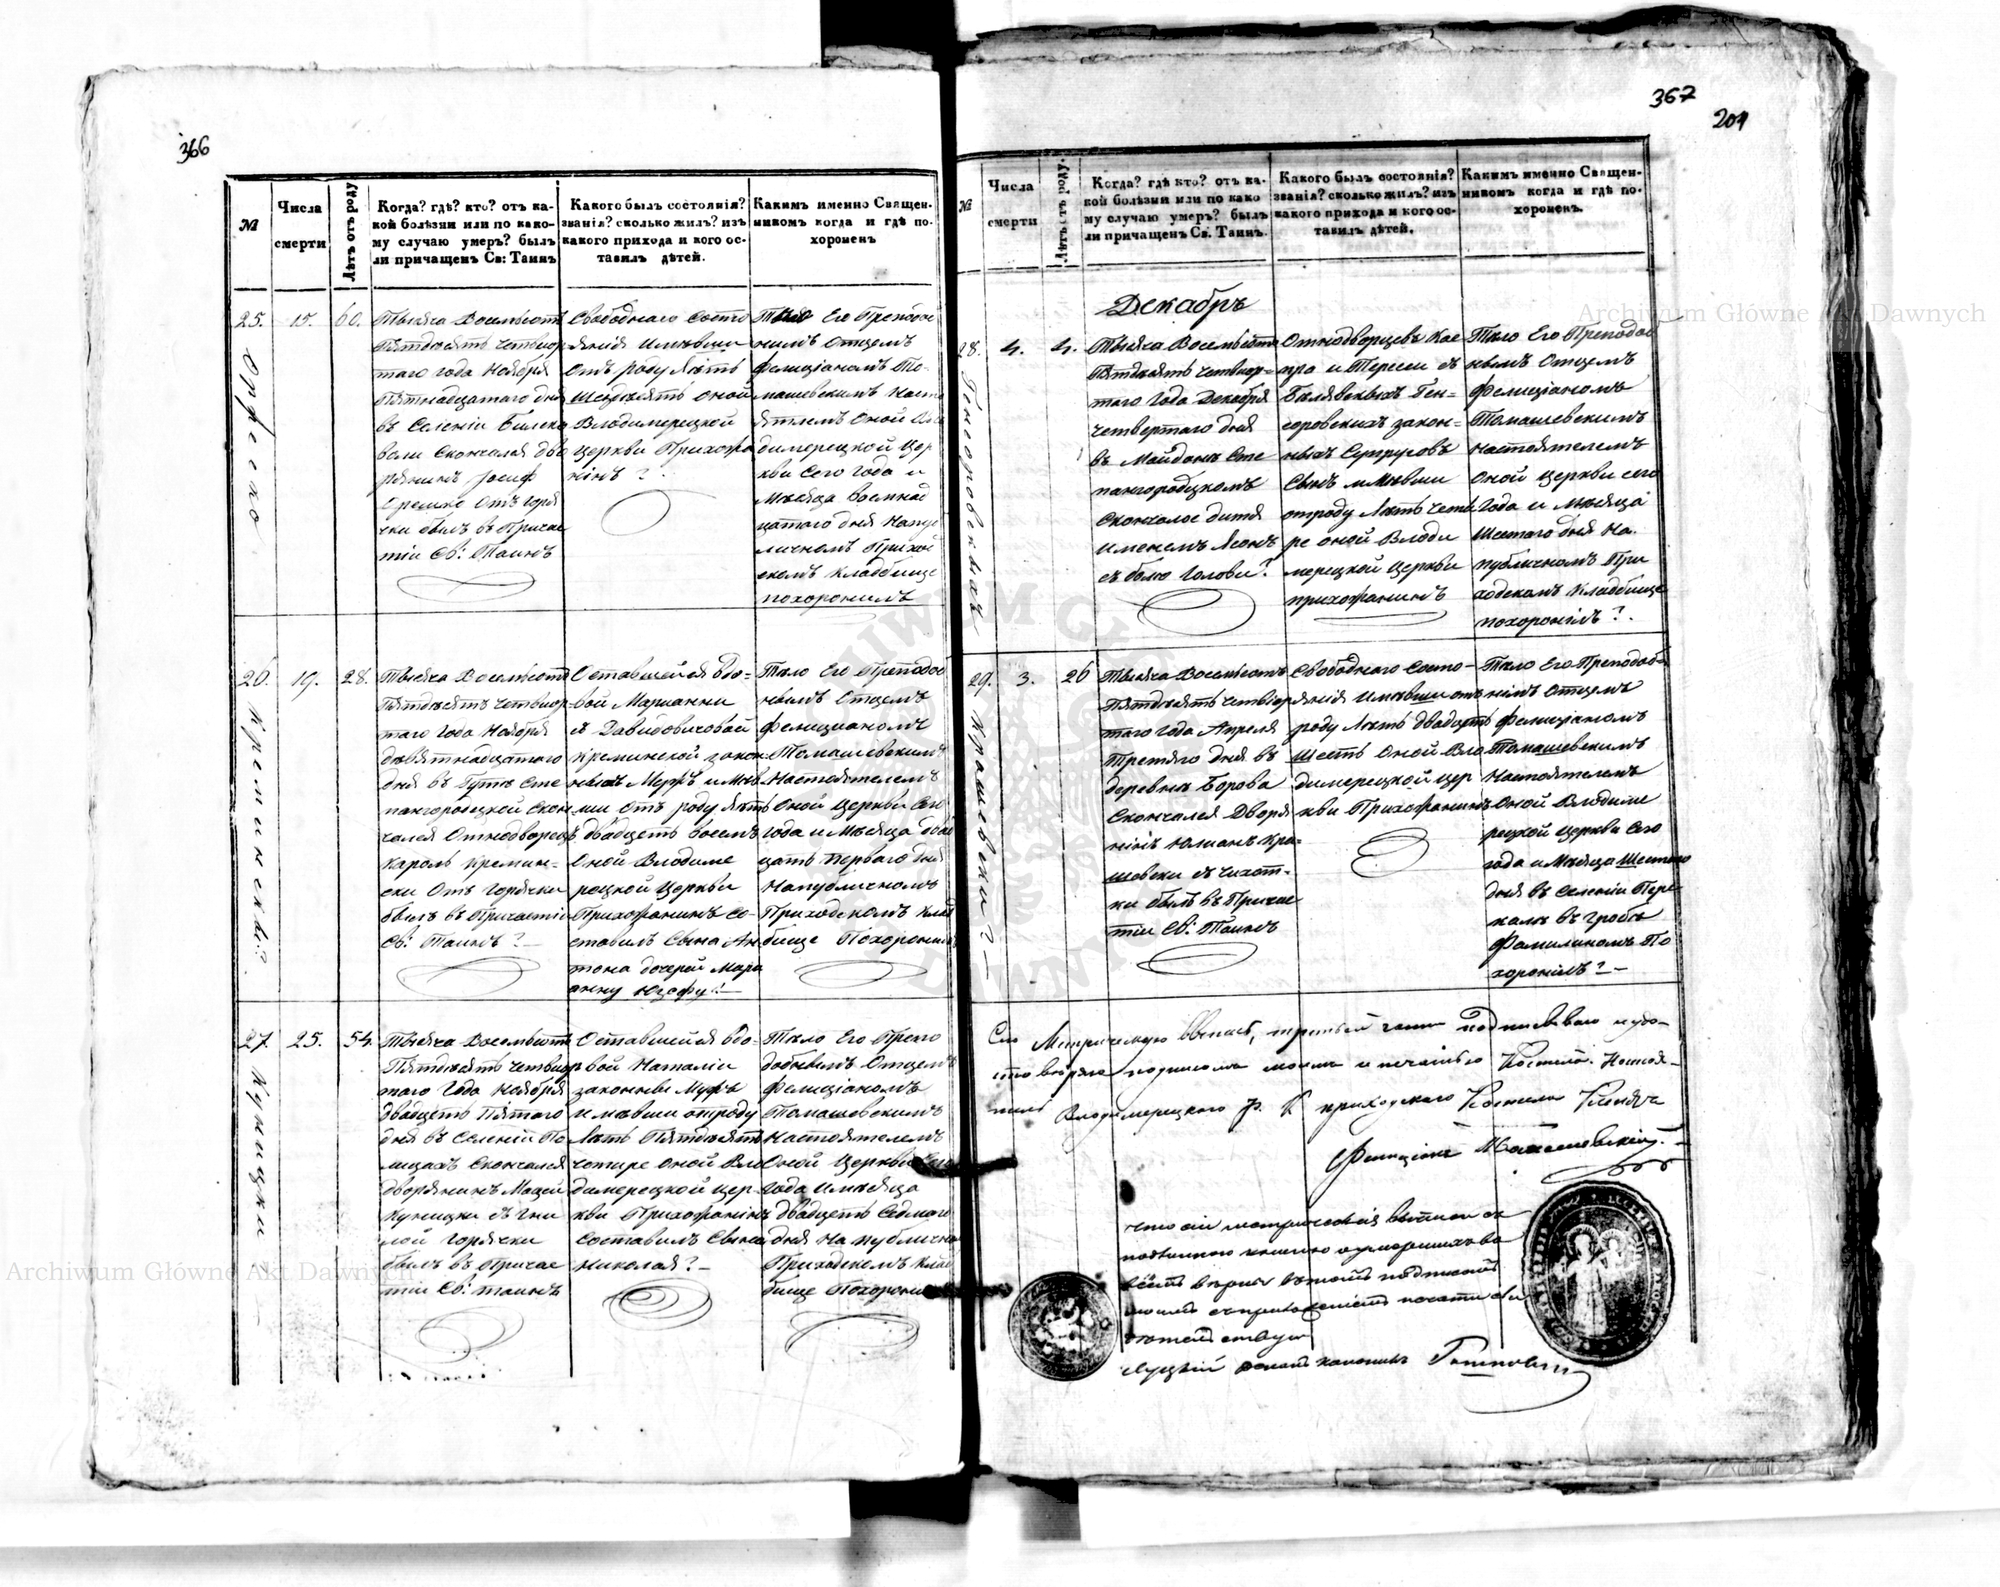 366
№
Числа
смерти
Лѣтъ отъ роду
Когда? гдѣ? кто? отъ ка-
кой болѣзни или по како-
му случаю умеръ? былъ
ли причащенъ Св: Таинъ
Какого былъ состоянія?
званія? сколько жилъ? изъ
какого прихода и кого ос-
тавилъ дѣтей.
Какимъ именно Священ-
никомъ когда и гдѣ по-
хороненъ
25.
15.
60.
Тысяча Восемьсотъ
Пятдесятъ четвер
таго года Ноября
Пятнадцатаго дня
въ Селеніи
Скончался дво
рянинъ
Отъ горя
чки былъ въ Причас
тіи Св: Таинъ
Свободнаго состо
янія имѣвши
Отъ роду Лѣтъ
Шездесятъ оной
Владимерецкой
Церкви Прихожа
нінъ?
Тѣло Его Преподоб
нимъ Отцемъ
Фелиціаномъ То-
машевскимъ Насто
ятелемъ Оной Вла
димерецкой Цер
кви Сего Года и
Мѣсяца Восемнад
цатаго дня Напуб
личномъ Приход
скомъ Кладбище
похоронилъ
26.
19.
28.
Креминскій?
Тысяча Восемьсотъ
Пятдесятъ четвер
таго Года Ноября
девятнадцатаго
дня въ Гутѣ Сте
пангородцкой Скон
чался Отнодворецъ
Кароль Кремин-
ски Отъ Горячки
былъ въ Причастіи
Св: Таинъ?
Оставшейся вдо-
вой Марианни
съ Давидовичовой
Креминской закон
ныхъ Мужъ имѣв
ши Отъ роду Лѣтъ
двадцетъ восемъ
Оной Владиме
рецкой Церкви
Прихожанинъ со-
ставилъ Сына Ан
тона дочерей Мари
анну Юзефу?
Тѣло Его Преподоб
нымъ Отцемъ
Фелиціаномъ
Томашевскимъ
Настоятелемъ
Оной Церкви Сего
года и Мѣсяца двад
цать перваго дня
Напубличномъ
Приходскомъ Клад
бище Похоронилъ
27.
25.
54.
Куницки
Тысяча Восемьсотъ
Пятдесятъ четвер
таго Года Ноября
двадцетъ Пятого
дня въ Селеніи По
лицахъ Скончался
дворянинъ Мацей
Куницки съ Гни
лой горячки
былъ въ Причас
тіи Св: таинъ
Оставшейся вдо-
вой Наталіи
законни Мужъ
имѣвши отроду
Лѣтъ Пятдесятъ
четире оной Вла
димерецкой Цер-
кви Прихожанінъ
составилъ Сына
Николая?
Тѣло Его Препо
добнымъ Отцемъ
Фелиціаномъ
Томашевскимъ
Настоятелемъ
Оной Церкви Сего
Года и мѣсяца
двадцетъ Седмаго
дня На публично
Приходскомъ Клад
бище Похоронилъ
367
204
№
Числа
смерти
Лѣтъ отъ роду.
Когда? гдѣ кто? отъ ка-
кой болѣзни или по како
му случаю умеръ? былъ
ли причащенъ Св. Таинъ.
Какого былъ состоянія?
званія? сколько жилъ? изъ
какого прихода и кого ос-
тавилъ дѣтей.
Какимъ именно Священ-
никомъ когда и гдѣ по-
хороненъ.
Декабръ
28.
4.
4.
Тысяча Восемьсотъ
Пятдесятъ четвер-
таго Года Декабря
четвертаго дня
въ Майданѣ Сте
пангородцкомъ
Скончалос дитя
именемъ Леонъ
съ болю Голови?
Отнодворцевъ Кас
пра и Тересси съ
Билявскихъ Ген-
соровскихъ закон-
ныхъ Супруговъ
Сынъ имѣвши
отроду Лѣтъ чети
ре оной Влоди
мерецкой Церкви
прихожанинъ
Тѣло Его Преподоб
нымъ Отцемъ
Фелиціаномъ
Томашевскимъ
настоятелемъ
Оной Церкви сего
Года и Мѣсяца
Шестаго дня На
публичномъ При
ходскомъ Кладбище
похоронилъ?
29.
3.
26
Крашевски?
Тысяча Восемьсотъ
Пятдесятъ четвер
таго года Апреля
Третяго дня въ
деревнѣ Борова
Скончался Дворя
нінъ Юліанъ Кра-
шевски съ чахот-
ки былъ въ Причас
тіи Св: Таинъ
Свободнаго состо-
янія имѣвши отъ
роду Лѣтъ двадцетъ
Шесть Оной Вла
димерецкой Цер
кви Прихожанинъ
Тѣло Его Преподоб-
нимъ Отцемъ
Фелиціаномъ
Томашевскимъ
Настоятелемъ
Оной Владиме
рецкой Церкви Сего
года и Мѣсяца Шестаго
дня въ Селеніи Пере-
калѣ въ гробѣ
Фамилиномъ По
хоронілъ?
Сію Метрическую Выпись, подписываю и удо-
стовѣряю подписомъ моимъ и печатью Костела. Настоя-
тель Владимерецкого Р. К приходского Костела Ксіондзъ
Фелиціанъ Томашевскій.
что сіи метрическія выписи съ
подлинною книгою о умершихъ во
всемъ вѣрны въ томъ подписомъ
моимъ съ приложеніемъ печати сви
дѣтельствую
Луцкій деканъ каноникъ
Archiwum Główne Akt Dawnych
Archiwum Główne Akt Dawnych